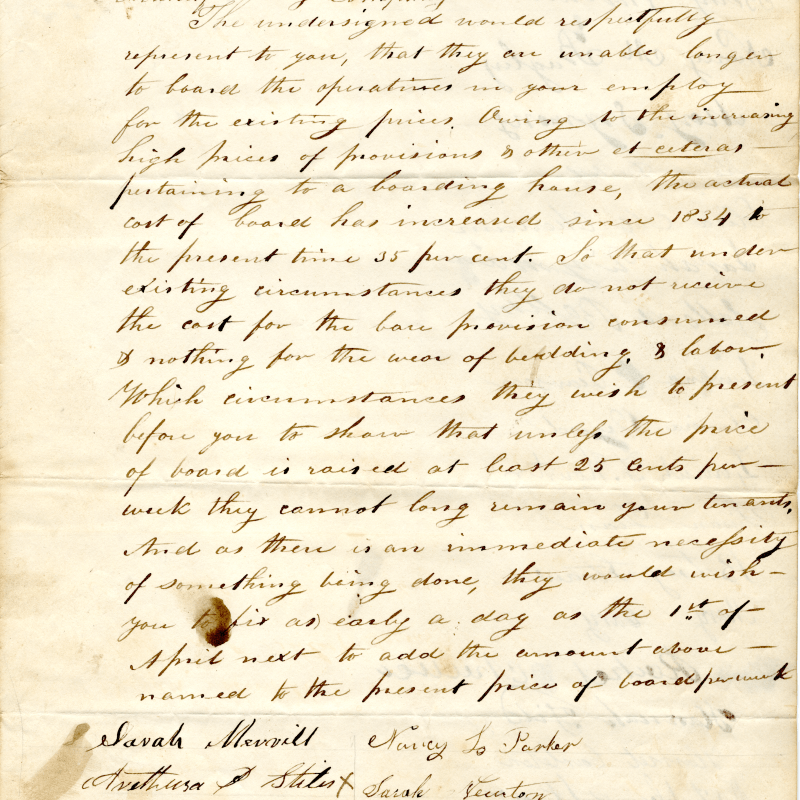 Company
The undersigned would respectfully
represent to you, that they are unable longer
to board the operatives in your employ
for the existing prices. Owing to the increasing
high prices of provisions & other et ceteras —
pertaining to a boarding house, the actual
cost of board has increased since 1834 to
the present time 35 per cent. So that under
existing circumstances they do not receive
the cost for the bare provision consumed
& nothing for the wear of bedding, & labor.
Which circumstances they wish to present
before you to show that unless the price
of board is raised at least 25 cents per —
week they cannot long remain your tenants.
And as there is an immediate necessity
of something being done, they would wish —
you to fix as early a day as the 1st of —
April next to add the amount above —
named to the present price of board per week
Sarah Merrill Nancy L Parker
Arethusa D Stiles X Sarah